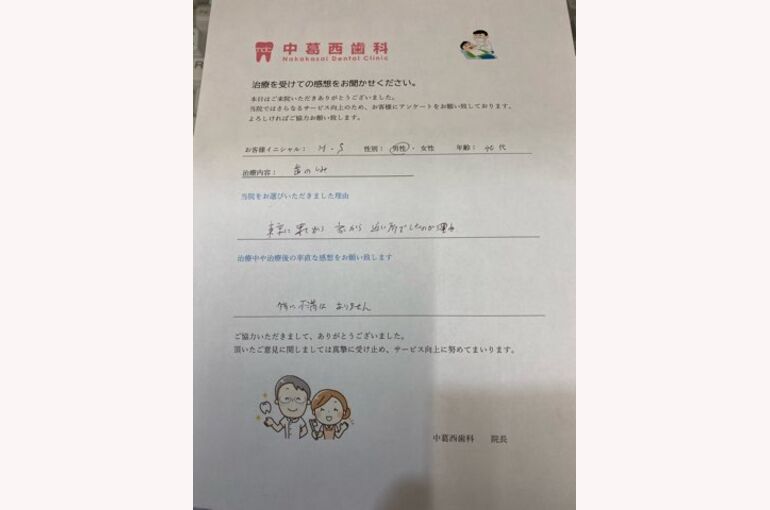 中葛西歯科
Nakakasai Dental Clinic
治療を受けての感想をお聞かせください。
本日はご来院いただきありがとうございました。
当院ではさらなるサービス向上のため、お客様にアンケートをお願い致しております。
よろしければご協力お願い致します。
お客様イニシャル： H・S 性別： 男性・女性 年齢： 40代
治療内容： 歯のしみ
当院をお選びいただきました理由
東京に 家から 近い所でしたのが理由
治療中や治療後の率直な感想をお願い致します
特に不満は ありません
ご協力いただきまして、ありがとうございました。
頂いたご意見に関しましては真摯に受け止め、サービス向上に努めてまいります。
中葛西歯科 院長